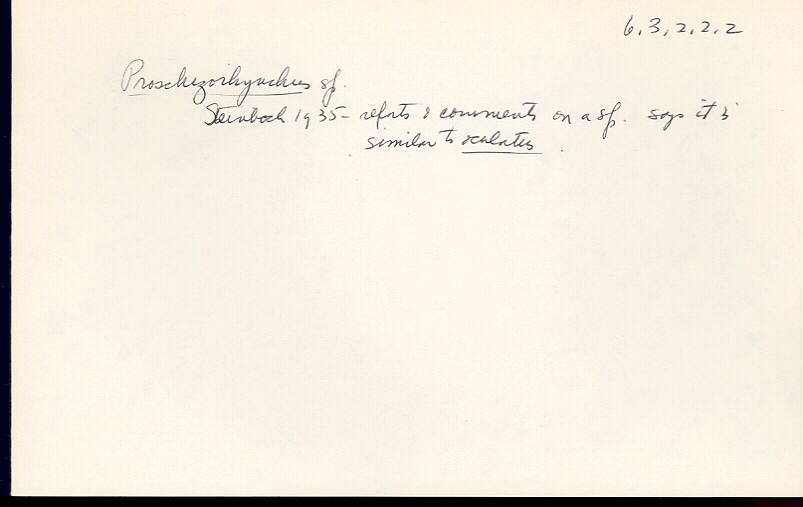 6.3.2.2.2
Proschizorhynchus sp.
Steinbock 1935 - reports & comments on a sp. says it is
similar to oculatus.